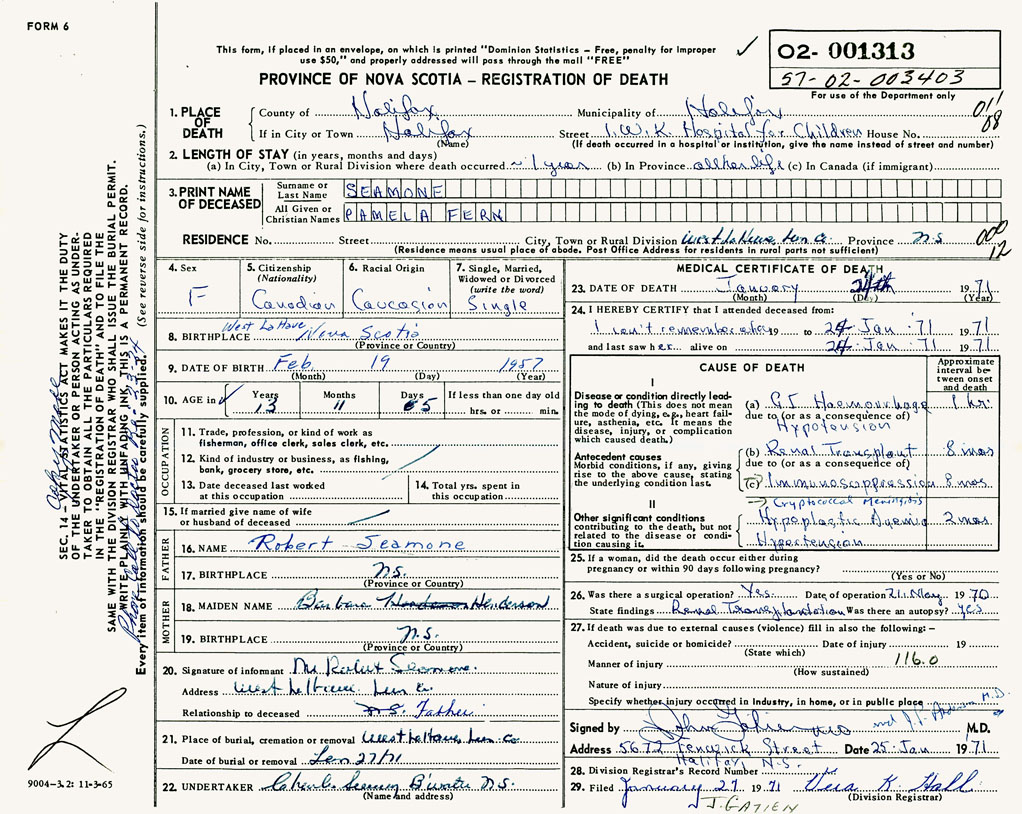 FORM 6
This form, if placed in an envelope, on which is printed "Dominion Statistics – Free, penalty for improper
use $50," and properly addressed will pass through the mail "FREE"
PROVINCE OF NOVA SCOTIA – REGISTRATION OF DEATH
✓
02- 001313
57-02-003403
For use of the Department only
1. PLACE OF DEATH
County of Halifax Municipality of Halifax
If in City or Town Halifax Street I.W.K. Hospital for Children House No.
(Name) (If death occurred in a hospital or institution, give the name instead of street and number)
011
08
2. LENGTH OF STAY (in years, months and days)
(a) In City, Town or Rural Division where death occurred ~1 year (b) In Province all her life (c) In Canada (if immigrant)
3. PRINT NAME OF DECEASED
Surname or Last Name SEAMONE
All Given or Christian Names PAMELA FERN
RESIDENCE No. Street City, Town or Rural Division West LaHave, Lun Co. Province N.S
(Residence means usual place of abode. Post Office Address for residents in rural parts not sufficient)
000
12
4. Sex F
5. Citizenship (Nationality) Canadian
6. Racial Origin Caucasian
7. Single, Married, Widowed or Divorced (write the word) Single
8. BIRTHPLACE West LaHave Nova Scotia
(Province or Country)
9. DATE OF BIRTH Feb. 19 1957
(Month) (Day) (Year)
10. AGE in ✓ Years 13 Months 11 Days 5 If less than one day old
hrs. or min.
OCCUPATION
11. Trade, profession, or kind of work as
fisherman, office clerk, sales clerk, etc.
12. Kind of industry or business, as fishing,
bank, grocery store, etc.
13. Date deceased last worked
at this occupation
14. Total yrs. spent in
this occupation
15. If married give name of wife
or husband of deceased
FATHER
16. NAME Robert Seamone
17. BIRTHPLACE N.S.
(Province or Country)
MOTHER
18. MAIDEN NAME Barbara Henderson
19. BIRTHPLACE N.S.
(Province or Country)
20. Signature of informant Mr Robert Seamone.
Address West LaHave Lun Co.
Relationship to deceased N.S. Father
21. Place of burial, cremation or removal West LaHave, Lun. Co
Date of burial or removal Jan 27/71
22. UNDERTAKER B'water N.S.
(Name and address)
MEDICAL CERTIFICATE OF DEATH
23. DATE OF DEATH January 24th 1971
(Month) (Day) (Year)
24. I HEREBY CERTIFY that I attended deceased from:
I can't remember 19 to 24 Jan '71 1971
and last saw her alive on 24 Jan '71 1971
CAUSE OF DEATH
Approximate interval between onset and death
I
Disease or condition directly leading to death (This does not
mean the mode of dying, e.g., heart failure, asthenia, etc. It means the
disease, injury, or complication
which caused death.)
(a) G.I. Haemorrhage 1 hr.
due to (or as a consequence of)
Hypotension
Antecedent causes
Morbid conditions, if any, giving
rise to the above cause, stating
the underlying condition last.
(b) Renal Transplant 8 mos
due to (or as a consequence of)
(c) Immunosuppression 8 mos
→ Cryptococcal Meningitis
II
Other significant conditions
contributing to the death, but not
related to the disease or condition causing it.
Hypoplastic Anemia 2 mos.
Hypertension
25. If a woman, did the death occur either during
pregnancy or within 90 days following pregnancy?
(Yes or No)
26. Was there a surgical operation? Yes. Date of operation 21. May 1970
State findings Renal Transplantation Was there an autopsy? yes
27. If death was due to external causes (violence) fill in also the following: –
Accident, suicide or homicide? Date of injury 19
(State which)
Manner of injury 116.0
(How sustained)
Nature of injury
Specify whether injury occurred in industry, in home, or in public place
Signed by John M.D.
Address 5672 Fenwick Street Date 25 Jan 1971
Halifax, N.S.
28. Division Registrar's Record Number
29. Filed January 27 1971 Vera K. Hall
(Division Registrar)
J. GATIEN
SEC. 14 – VITAL STATISTICS ACT MAKES IT THE DUTY
OF THE UNDERTAKER OR PERSON ACTING AS UNDER-
TAKER TO OBTAIN ALL THE PARTICULARS REQUIRED
IN THE "REGISTRATION OF DEATH" AND TO FILE THE
SAME WITH THE DIVISION REGISTRAR WHO SHALL ISSUE THE BURIAL PERMIT.
WRITE PLAINLY WITH UNFADING INK, THIS IS A PERMANENT RECORD.
Every item of information should be carefully supplied. (See reverse side for instructions.)
9004-3.2: 11-3-65